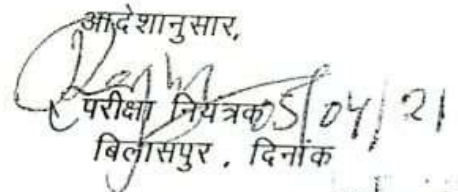 आदेशानुसार,
परीक्षा नियंत्रक 05/04/21
बिलासपुर , दिनांक